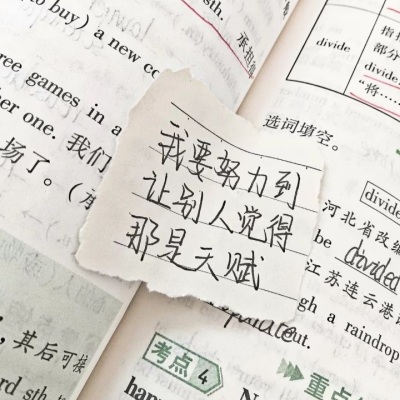 to buy) a new co
sth.
承担
ree games in a
her one. 我们
场了。(
我要努力到
让别人觉得
那是天赋
divide
指
部分
divide
“将……
选词填空。
divide
河北省改编
be divided
江苏连云港
gh a raindrop
separate ut.
其后可接
rd sth
考点 4
重点
hap